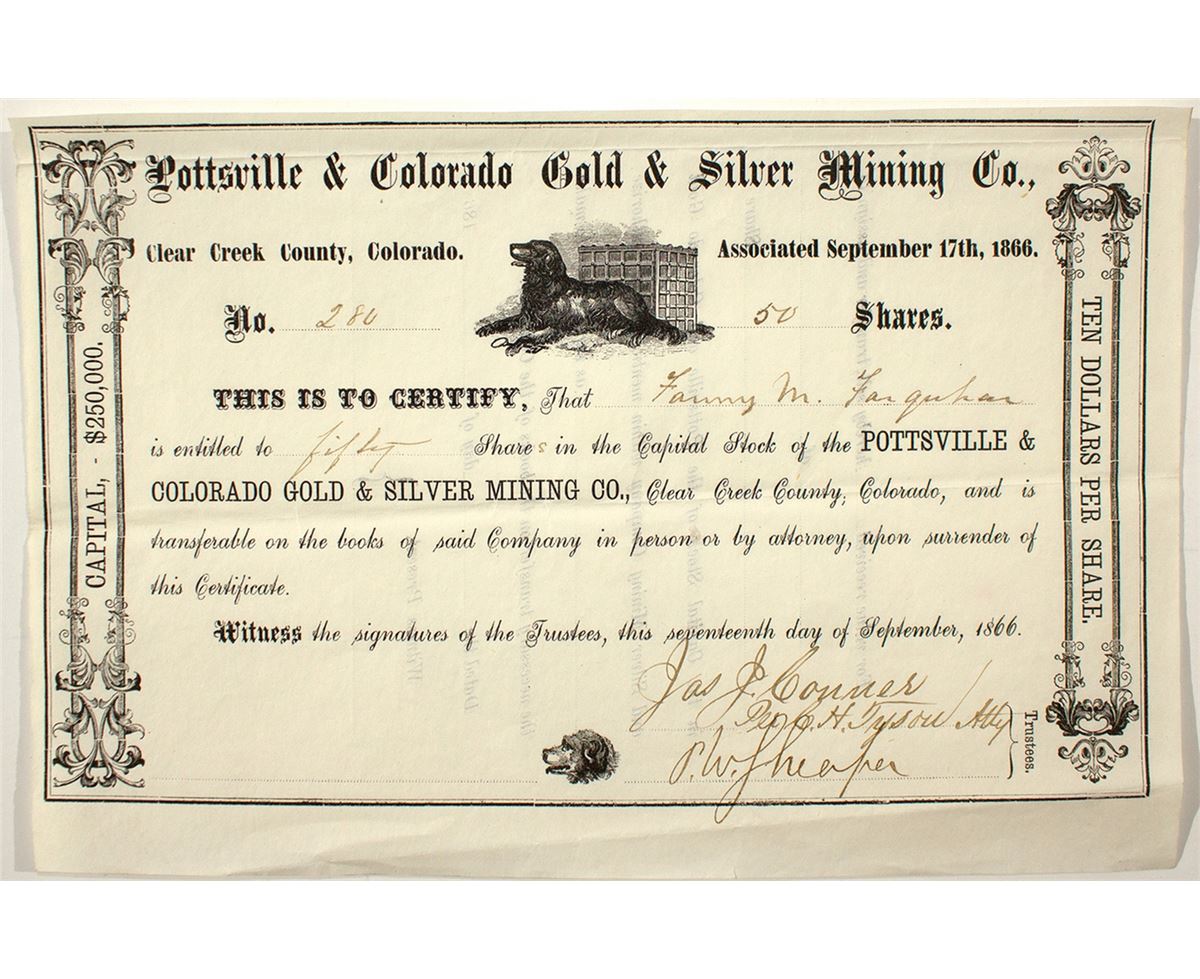 Pottsville & Colorado Gold & Silver Mining Co.,
Clear Creek County, Colorado.
Associated September 17th, 1866.
No. 280
50 Shares.
THIS IS TO CERTIFY, That Fanny M. Farquhar
is entitled to fifty Shares in the Capital Stock of the POTTSVILLE &
COLORADO GOLD & SILVER MINING CO., Clear Creek County, Colorado, and is
transferable on the books of said Company in person or by attorney, upon surrender of
this Certificate.
Witness the signatures of the Trustees, this seventeenth day of September, 1866.
Jas J. Conner
Per C. H. Tyson Atty
P. W. Sheafer
Trustees.
CAPITAL, - $250,000.
TEN DOLLARS PER SHARE.